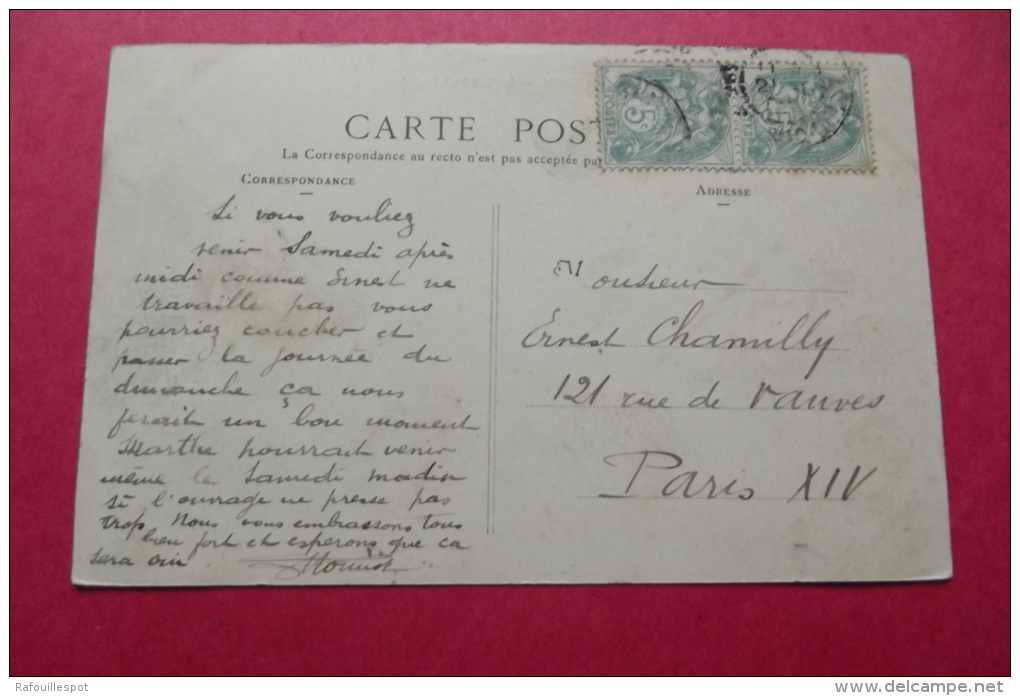 CARTE POST
La Correspondance au recto n'est pas acceptée pa
CORRESPONDANCE
ADRESSE
Si vous vouliez
venir Samedi après
midi comme Ernest ne
travaille pas vous
pourriez coucher et
passer la journée du
dimanche ça nous
ferait un bon moment
Marthe pourrait venir
même le Samedi madin
si l'ouvrage ne presse pas
trop Nous vous embrassons tous
bien fort et esperons que ca
sera oui
Monsieur
Ernest Chamilly
121 rue de Vanves
Paris XIV
POSTES
5c
Rafouillespot
delcampe.net